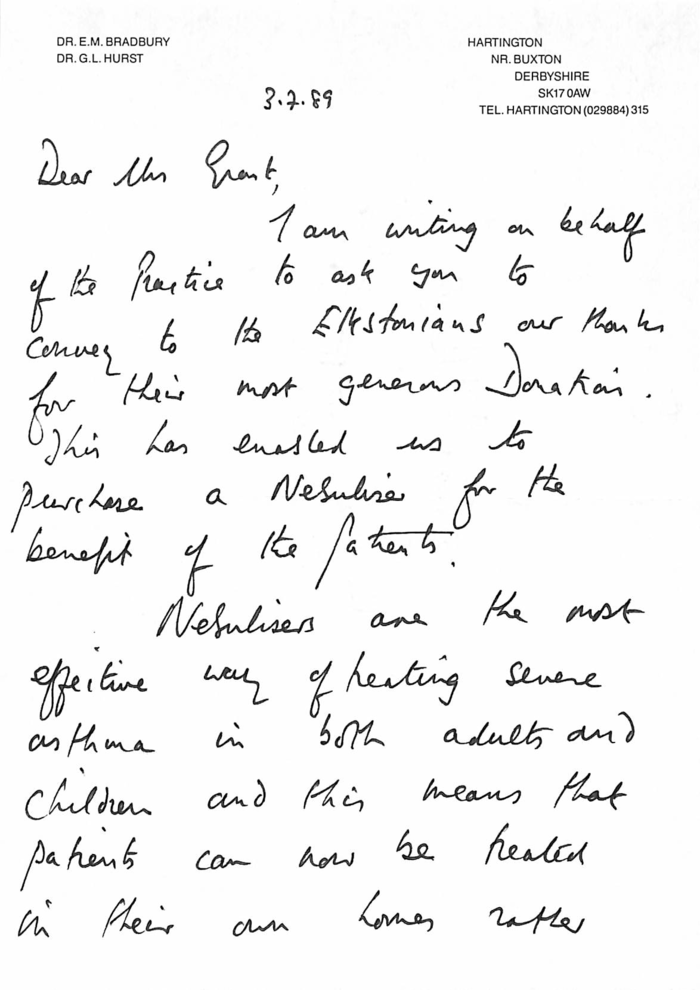 DR. E.M. BRADBURY
DR. G.L. HURST
HARTINGTON
NR. BUXTON
DERBYSHIRE
SK17 0AW
TEL. HARTINGTON (029884) 315
3.2.89
Dear Mrs Grant,
I am writing on behalf
of the Practice to ask you to
convey to the Elkstonians our thanks
for their most generous Donation.
This has enabled us to
purchase a Nebuliser for the
benefit of the patients.
Nebulisers are the most
effective way of treating severe
asthma in both adults and
children and this means that
patients can now be treated
in their own homes rather